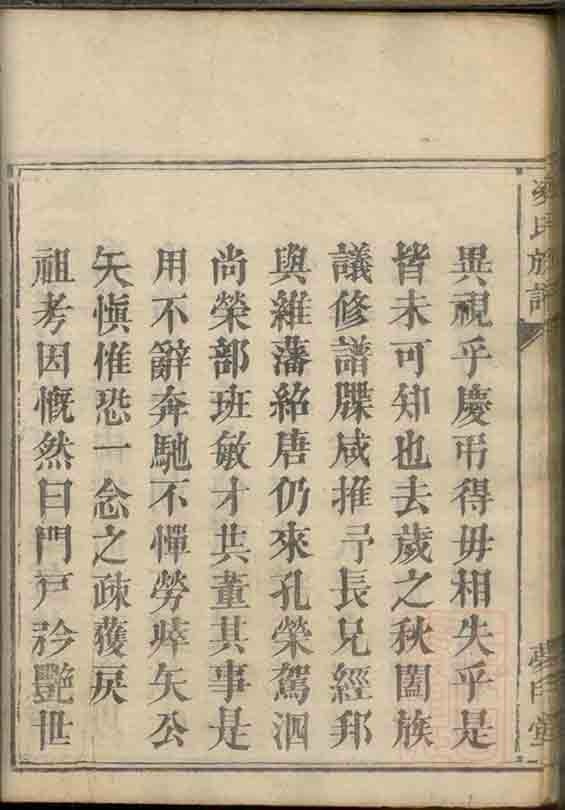 異視乎慶弔得毋相失乎是
皆未可知也去歲之秋闔族
議修譜牒咸推予長兄經邦
與維藩紹唐仍來孔榮駕泗
尚榮部班敏才共董其事是
用不辭奔馳不憚勞瘁矢公
矢慎惟恐一念之疎獲戾
祖考因慨然曰門戸矜艷世
氏族譜
堂